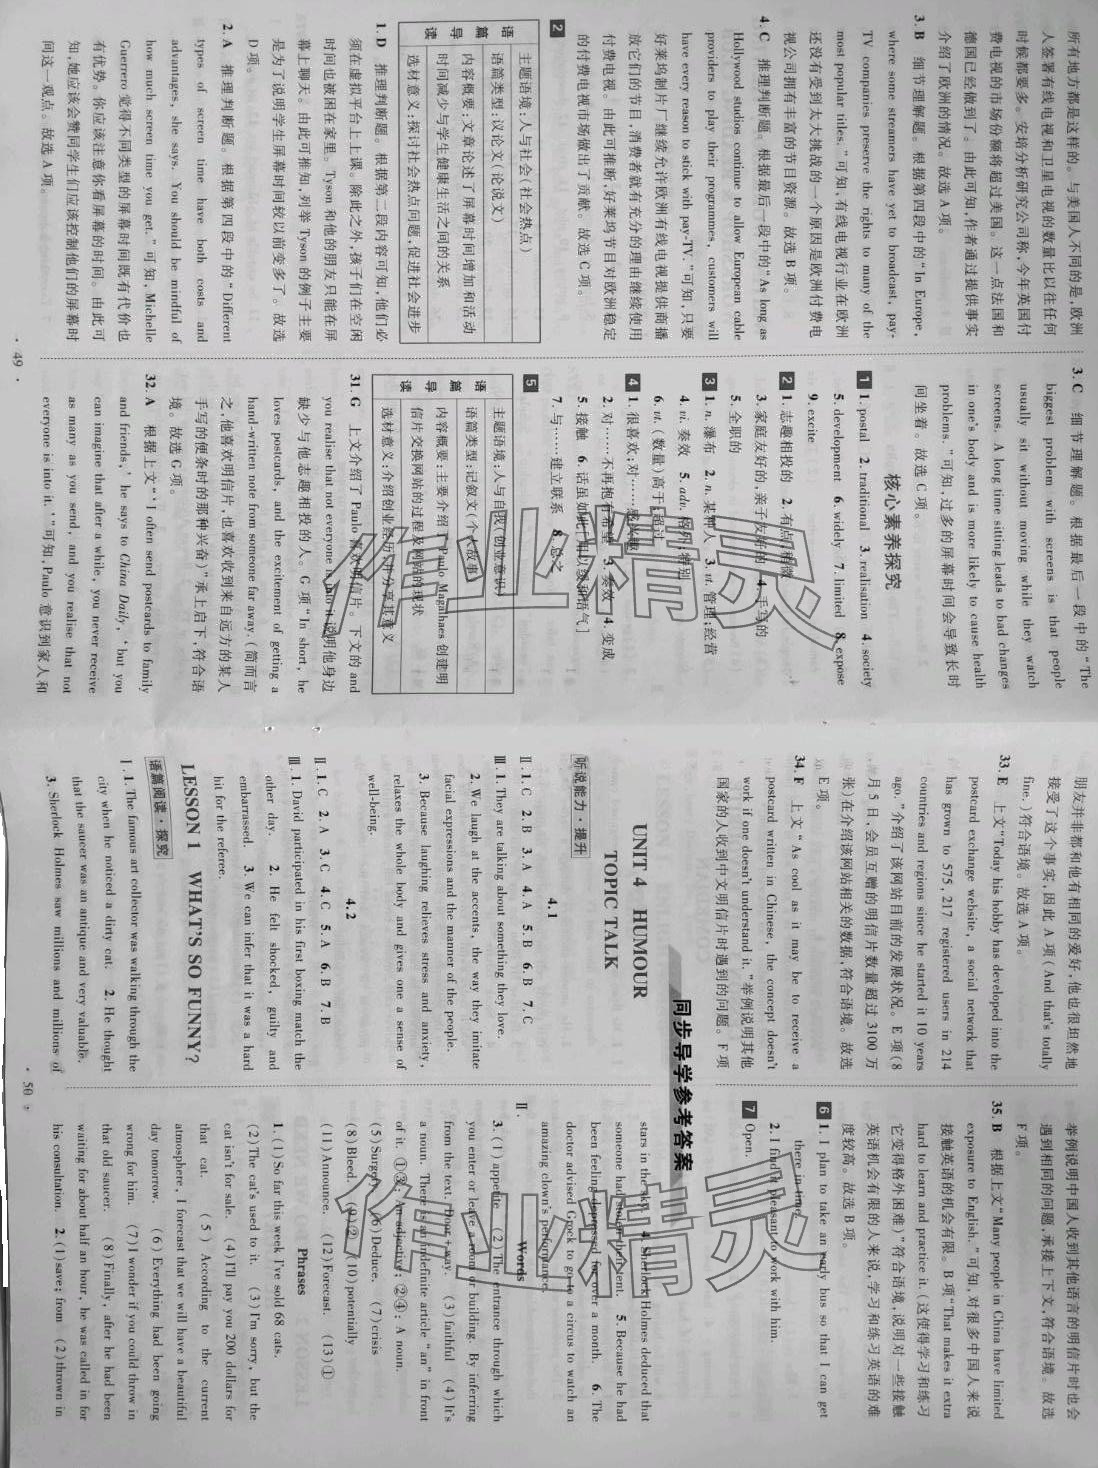 所有地方都是这样的。与美国人不同的是,欧洲
人签署有线电视和卫星电视的数量比以往任何
时候都要多。安培分析研究公司称,今年英国付
费电视的市场份额将超过美国。这一点法国和
德国已经做到了。由此可知,作者通过提供事实
介绍了欧洲的情况。故选 A 项。
3. B 细节理解题。根据第四段中的“In Europe,
where some streamers have yet to broadcast, pay-
TV companies preserve the rights to many of the
most popular titles.”可知,有线电视行业在欧洲
还没有受到太大挑战的一个原因是欧洲付费电
视公司拥有丰富的节目资源。故选 B 项。
4. C 推理判断题。根据最后一段中的“As long as
Hollywood studios continue to allow European cable
providers to play their programmes, customers will
have every reason to stick with pay-TV.”可知,只要
好莱坞制片厂继续允许欧洲有线电视提供商播
放它们的节目,消费者就有充分的理由继续使用
付费电视。由此可推断,好莱坞节目对欧洲稳定
的付费电视市场做出了贡献。故选 C 项。
2
语篇导读
主题语境:人与社会(社会热点)
语篇类型:议论文(论说文)
内容概要:文章论述了屏幕时间增加和活动
时间减少与学生健康生活之间的关系
选材意义:探讨社会热点问题,促进社会进步
1. D 推理判断题。根据第二段内容可知,他们必
须在虚拟平台上上课。除此之外,孩子们在空闲
时间也被困在家里。Tyson 和他的朋友只能在屏
幕上聊天。由此可推知,列举 Tyson 的例子主要
是为了说明学生屏幕时间较以前变多了。故选
D 项。
2. A 推理判断题。根据第四段中的“Different
types of screen time have both costs and
advantages, she says. You should be mindful of
how much screen time you get.”可知,Michelle
Guerrero 觉得不同类型的屏幕时间既有代价也
有优势。你应该注意你看屏幕的时间。由此可
知,她应该会赞同学生们应该控制他们的屏幕时
间这一观点。故选 A 项。
3. C 细节理解题。根据最后一段中的“The
biggest problem with screens is that people
usually sit without moving while they watch
screens. A long time sitting leads to bad changes
in one's body and is more likely to cause health
problems.”可知,过多的屏幕时间会导致长时
间坐着。故选 C 项。
核心素养探究
1 1. postal 2. traditional 3. realisation 4. society
5. development 6. widely 7. limited 8. expose
9. excite
2 1. 志趣相投的 2. 有点;稍微
3. 家庭友好的,亲子友好的 4. 手写的
5. 全职的
3 1. n. 瀑布 2. n. 某种人 3. vt. 管理;经营
4. vi. 奏效 5. adv. 格外;特别
6. vt. (数量)高于;超过
4 1. 很喜欢;对……感兴趣
2. 对……不再抱有希望 3. 奏效 4. 变成
5. 接触
7. 与……建立联系 8. 总之
5
语篇导读
主题语境:人与自我(创业意识)
语篇类型:记叙文(个人故事)
内容概要:主要介绍了 Paulo Magalhaes 创建明
信片交换网站的过程及网站的现状
选材意义:介绍创业经历,并分享其意义
31. G 上文介绍了 Paulo 喜欢明信片。下文的 and
you realise that not everyone is into it 说明他身边
缺少与他志趣相投的人。G 项“In short, he
loves postcards, and the excitement of getting a
hand-written note from someone far away. (简而言
之,他喜欢明信片,也喜欢收到来自远方的某人
手写的便条时的那种兴奋)”承上启下,符合语
境。故选 G 项。
32. A 根据上文“‘I often send postcards to family
and friends,’ he says to China Daily, ‘but you
can imagine that after a while, you never receive
as many as you send, and you realise that not
everyone is into it.’”可知,Paulo 意识到家人和
· 49 ·
朋友并非都和他有相同的爱好,他也很坦然地
接受了这个事实,因此 A 项(And that's totally
fine.)符合语境。故选 A 项。
33. E 上文“Today his hobby has developed into the
postcard exchange website, a social network that
has grown to 575, 217 registered users in 214
countries and regions since he started it 10 years
ago.”介绍了该网站目前的发展状况。E 项(8
月 5 日,会员互赠的明信片数量超过 3100 万
张)在介绍该网站相关的数据,符合语境。故选
E 项。
34. F 上文“As cool as it may be to receive a
postcard written in Chinese, the concept doesn't
work if one doesn't understand it.”举例说明其他
国家的人收到中文明信片时遇到的问题。F 项
举例说明中国人收到其他语言的明信片时也会
遇到相同的问题,承接上下文,符合语境。故选
F 项。
35. B 根据上文“Many people in China have limited
exposure to English.”可知,对很多中国人来说
接触英语的机会有限。B 项“That makes it extra
hard to learn and practice it. (这使得学习和练习
它变得格外困难)”符合语境,说明对一些接触
英语机会有限的人来说,学习和练习英语的难
度较高。故选 B 项。
6 1. I plan to take an early bus so that I can get
there in time.
2. I find it pleasant to work with him.
7 Open.
同步导学参考答案
UNIT 4 HUMOUR
TOPIC TALK
听说能力·提升
4.1
Ⅱ. 1. C 2. B 3. A 4. A 5. B 6. B 7. C
Ⅲ. 1. They are talking about something they love.
2. We laugh at the accents, the way they imitate
facial expressions and the manner of the people.
3. Because laughing relieves stress and anxiety,
relaxes the whole body and gives one a sense of
well-being.
4.2
Ⅱ. 1. C 2. A 3. C 4. C 5. A 6. B 7. B
Ⅲ. 1. David participated in his first boxing match the
other day. 2. He felt shocked, guilty and
embarrassed. 3. We can infer that it was a hard
hit for the referee.
LESSON 1 WHAT'S SO FUNNY?
语篇阅读·探究
Ⅰ. 1. The famous art collector was walking through the
city when he noticed a dirty cat. 2. He thought
that the saucer was an antique and very valuable.
3. Sherlock Holmes saw millions and millions of
stars in the sky. 4. Sherlock Holmes deduced that
someone had stolen their tent. 5. Because he had
been feeling depressed for over a month. 6. The
doctor advised Grock to go to a circus to watch an
amazing clown's performance.
Ⅱ. Words
3. (1) appetite (2) The entrance through which
you enter or leave a room or building. By inferring
from the text. Door+way. (3) faithful (4) It's
a noun. There is an indefinite article “an” in front
of it. ①③: An adjective; ②④: A noun.
(5) Surgery. (6) Deduce. (7) crisis
(8) Bleed. (9)② (10) potentially
(11) Announce. (12) Forecast. (13)①
Phrases
1. (1) So far this week I've sold 68 cats.
(2) The cat's used to it (3) I'm sorry, but the
cat isn't for sale. (4) I'll pay you 200 dollars for
that cat. (5) According to the current
atmosphere, I forecast that we will have a beautiful
day tomorrow. (6) Everything had been going
wrong for him. (7) I wonder if you could throw in
that old saucer. (8) Finally, after he had been
waiting for about half an hour, he was called in for
his consultation. 2. (1) save; from (2) thrown in
· 50 ·
作业精灵
作业精灵